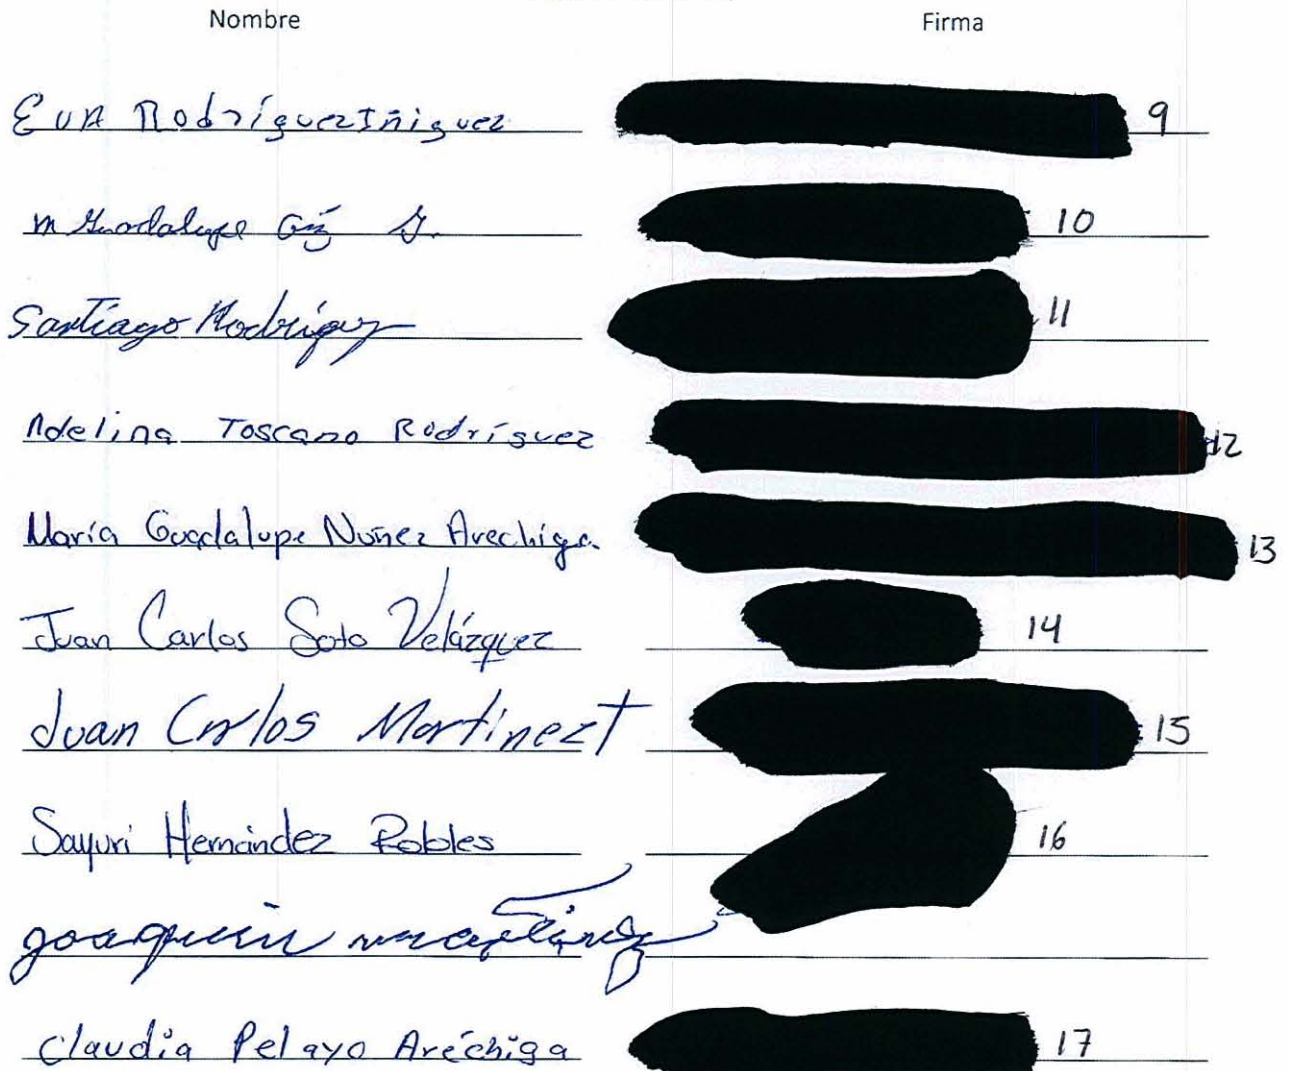 Nombre Firma
Eva Rodríguez Iñiguez 9
M Guadalupe G. 10
Santiago Rodríguez 11
Adelina Toscano Rodríguez 12
María Guadalupe Nuñez Arechiga 13
Juan Carlos Soto Velázquez 14
Juan Carlos Martinez T 15
Sayuri Hernández Robles 16
joaquin
Claudia Pelayo Aréchiga 17